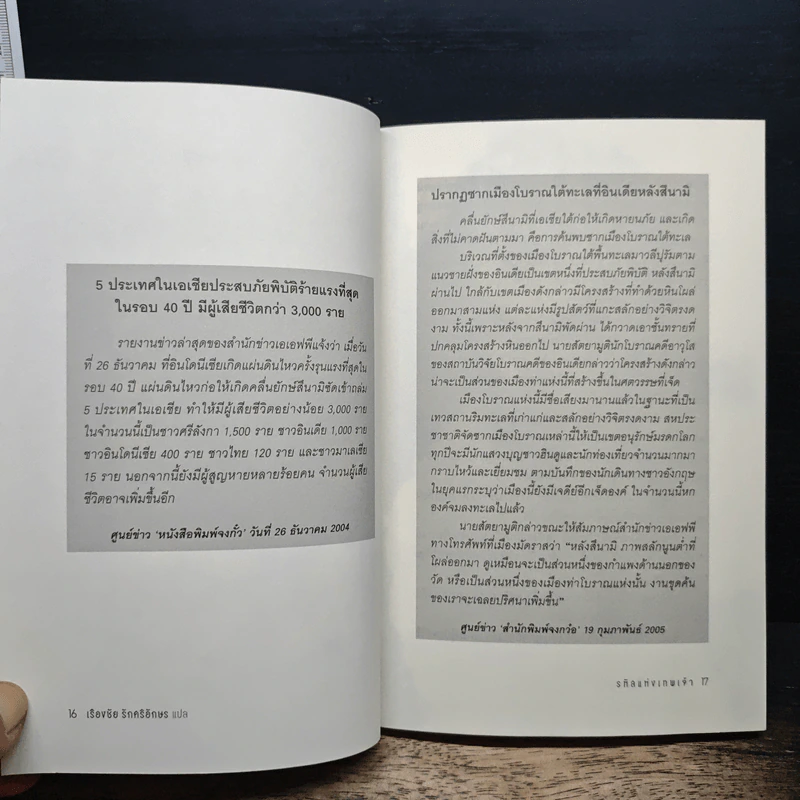 5 ประเทศในเอเชียประสบภัยพิบัติร้ายแรงที่สุด
ในรอบ 40 ปี มีผู้เสียชีวิตกว่า 3,000 ราย
รายงานข่าวล่าสุดของสำนักข่าวเอเอฟพีแจ้งว่า เมื่อวัน
ที่ 26 ธันวาคม ที่อินโดนีเซียเกิดแผ่นดินไหวครั้งรุนแรงที่สุดใน
รอบ 40 ปี แผ่นดินไหวก่อให้เกิดคลื่นยักษ์สึนามิซัดเข้าถล่ม
5 ประเทศในเอเชีย ทำให้มีผู้เสียชีวิตอย่างน้อย 3,000 ราย
ในจำนวนนี้เป็นชาวศรีลังกา 1,500 ราย ชาวอินเดีย 1,000 ราย
ชาวอินโดนีเซีย 400 ราย ชาวไทย 120 ราย และชาวมาเลเซีย
15 ราย นอกจากนี้ยังมีผู้สูญหายหลายร้อยคน จำนวนผู้เสีย
ชีวิตอาจเพิ่มขึ้นอีก
ศูนย์ข่าว 'หนังสือพิมพ์จงกั๋ว' วันที่ 26 ธันวาคม 2004
16 เรืองชัย รักศรีอักษร แปล
ปรากฏซากเมืองโบราณใต้ทะเลที่อินเดียหลังสึนามิ
คลื่นยักษ์สึนามิที่เอเชียใต้ก่อให้เกิดหายนภัย และเกิด
สิ่งที่ไม่คาดฝันตามมา คือการค้นพบซากเมืองโบราณใต้ทะเล
บริเวณที่ตั้งของเมืองโบราณใต้พื้นทะเลมาวลีปุรัมตาม
แนวชายฝั่งของอินเดียเป็นเขตหนึ่งที่ประสบภัยพิบัติ หลังสึนามิ
ผ่านไป ใกล้กับเขตเมืองดังกล่าวมีโครงสร้างที่ทำด้วยหินโผล่
ออกมาสามแห่ง แต่ละแห่งมีรูปสัตว์ที่แกะสลักอย่างวิจิตรงด
งาม ทั้งนี้เพราะหลังจากสึนามิพัดผ่าน ได้กวาดเอาชั้นทรายที่
ปกคลุมโครงสร้างหินออกไป นายสัตยามูตินักโบราณคดีอาวุโส
ของสถาบันวิจัยโบราณคดีของอินเดียกล่าวว่าโครงสร้างดังกล่าว
น่าจะเป็นส่วนของเมืองท่าแห่งนี้ที่สร้างขึ้นในศตวรรษที่เจ็ด
เมืองโบราณแห่งนี้มีชื่อเสียงมานานแล้วในฐานะที่เป็น
เทวสถานริมทะเลที่เก่าแก่และสลักอย่างวิจิตรงดงาม สหประ
ชาชาติจัดซากเมืองโบราณเหล่านี้ให้เป็นเขตอนุรักษ์มรดกโลก
ทุกปีจะมีนักแสวงบุญชาวฮินดูและนักท่องเที่ยวจำนวนมากมา
กราบไหว้และเยี่ยมชม ตามบันทึกของนักเดินทางชาวอังกฤษ
ในยุคแรกระบุว่าเมืองนี้ยังมีเจดีย์อีกเจ็ดองค์ ในจำนวนนี้หก
องค์จมลงทะเลไปแล้ว
นายสัตยามูติกล่าวขณะให้สัมภาษณ์สำนักข่าวเอเอฟพี
ทางโทรศัพท์ที่เมืองมัดราสว่า "หลังสึนามิ ภาพสลักนูนต่ำที่
โผล่ออกมา ดูเหมือนจะเป็นส่วนหนึ่งของกำแพงด้านนอกของ
วัด หรือเป็นส่วนหนึ่งของเมืองท่าโบราณแห่งนั้น งานขุดค้น
ของเราจะเฉลยปริศนาเพิ่มขึ้น"
ศูนย์ข่าว 'สำนักพิมพ์จงกว๋อ' 19 กุมภาพันธ์ 2005
รหัสแห่งเทพเจ้า 17